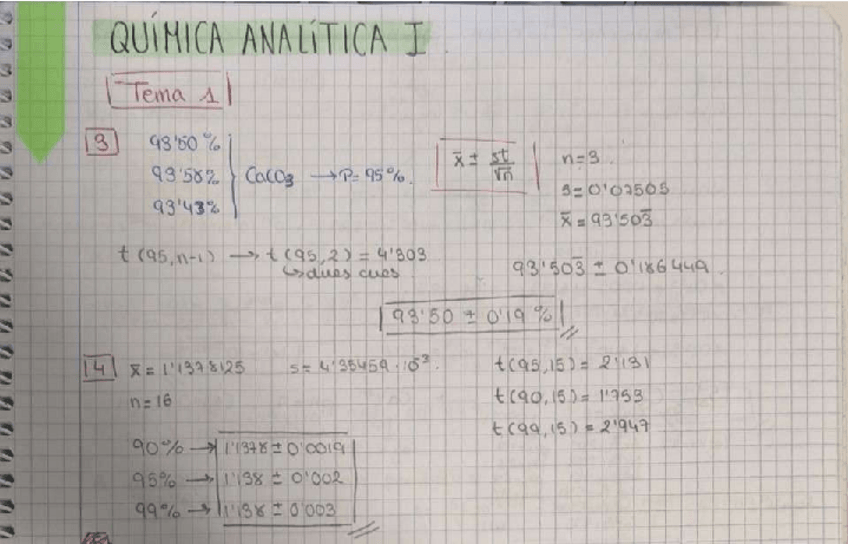 QUÍMICA ANALÍTICA I
Tema 1
3
93'50 %
93'58%
93'43%
CaCO3 → P= 95%.
x̄ ± st/√n
n=3
s=0'07505
x̄ = 93'503̄
t (95, n-1) → t (95, 2) = 4'303
↳ dues cues
93'503̄ ± 0'186449
93'50 ± 0'19 %
4
x̄ = 1'1378125
s= 4'35459·10⁻³
n=16
t(95,15)= 2'131
t(90,15)= 1'753
t(99,15) = 2'947
90% → 1'1378 ± 0'0019
95% → 1'138 ± 0'002
99% → 1'138 ± 0'003